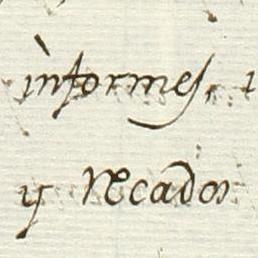 informes,
y Recados